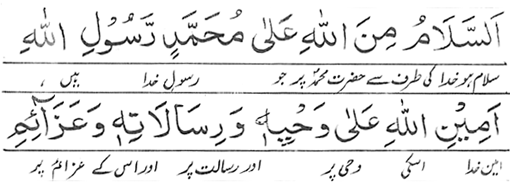 اَلسَّلَامُ مِنَ اللهِ عَلٰی مُحَمَّدٍ رَّسُوْلِ اللهِ
سلام ہو خدا کی طرف سے حضرت محمدؐ پر جو رسول خدا ہیں ،
اَمِیْنِ اللهِ عَلٰی وَحْیِهٖ وَرِسَالَاتِهٖ وَعَزَآئِمِ
امین خدا اسکی وحی پر اور رسالت پر اور اس کے عزائم پر